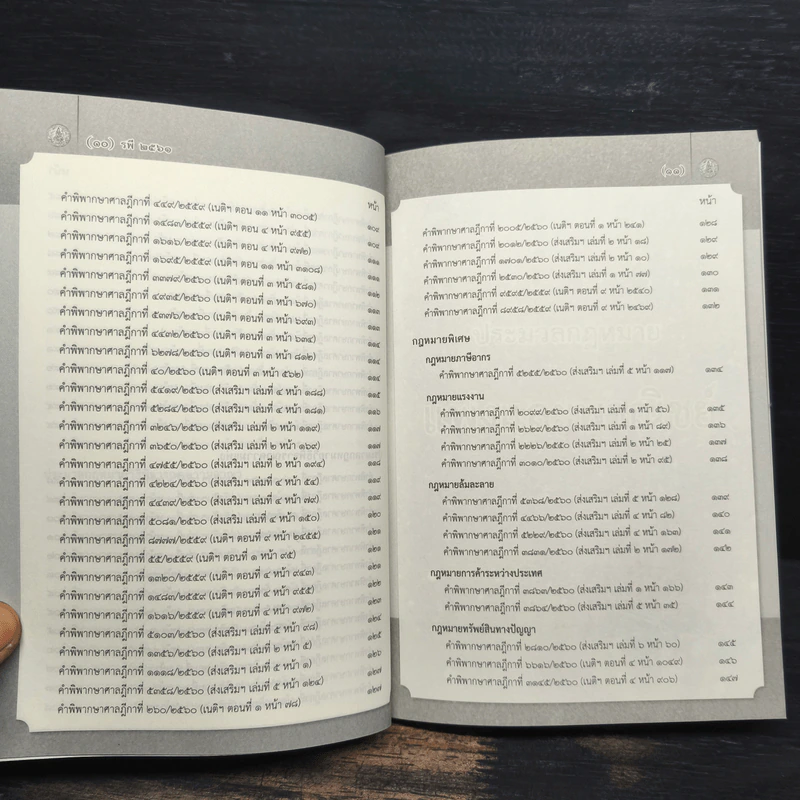 (๑๐) รพี ๒๕๖๑
หน้า
คำพิพากษาศาลฎีกาที่ ๔๔๙/๒๕๕๙ (เนติฯ ตอน ๑๑ หน้า ๓๐๐๕) ๑๐๙
คำพิพากษาศาลฎีกาที่ ๑๔๘๓/๒๕๕๙ (เนติฯ ตอน ๔ หน้า ๙๕๕) ๑๐๙
คำพิพากษาศาลฎีกาที่ ๑๖๑๖/๒๕๕๙ (เนติฯ ตอน ๔ หน้า ๙๗๒) ๑๑๑
คำพิพากษาศาลฎีกาที่ ๑๖๙๕/๒๕๕๙ (เนติฯ ตอน ๑๑ หน้า ๓๑๐๘) ๑๑๑
คำพิพากษาศาลฎีกาที่ ๓๓๗๙/๒๕๖๐ (เนติฯ ตอนที่ ๓ หน้า ๕๘๑) ๑๑๒
คำพิพากษาศาลฎีกาที่ ๔๙๓๕/๒๕๖๐ (เนติฯ ตอนที่ ๓ หน้า ๖๗๐) ๑๑๓
คำพิพากษาศาลฎีกาที่ ๕๓๗๖/๒๕๖๐ (เนติฯ ตอนที่ ๓ หน้า ๖๙๓) ๑๑๓
คำพิพากษาศาลฎีกาที่ ๔๔๓๒/๒๕๖๐ (เนติฯ ตอนที่ ๓ หน้า ๖๓๔) ๑๑๓
คำพิพากษาศาลฎีกาที่ ๖๒๗๘/๒๕๖๐ (เนติฯ ตอนที่ ๓ หน้า ๘๑๒) ๑๑๔
คำพิพากษาศาลฎีกาที่ ๔๐/๒๕๖๐ (เนติฯ ตอนที่ ๓ หน้า ๕๖๒) ๑๑๔
คำพิพากษาศาลฎีกาที่ ๕๔๑๙/๒๕๖๐ (ส่งเสริมฯ เล่มที่ ๔ หน้า ๑๘๘) ๑๑๕
คำพิพากษาศาลฎีกาที่ ๕๒๘๔/๒๕๖๐ (ส่งเสริมฯ เล่มที่ ๔ หน้า ๑๘๑) ๑๑๖
คำพิพากษาศาลฎีกาที่ ๓๒๔๖/๒๕๖๐ (ส่งเสริม เล่มที่ ๒ หน้า ๑๑๙) ๑๑๗
คำพิพากษาศาลฎีกาที่ ๓๖๕๐/๒๕๖๐ (ส่งเสริมฯ เล่มที่ ๒ หน้า ๑๖๙) ๑๑๗
คำพิพากษาศาลฎีกาที่ ๔๗๕๕/๒๕๖๐ (ส่งเสริมฯ เล่มที่ ๒ หน้า ๑๙๔) ๑๑๘
คำพิพากษาศาลฎีกาที่ ๔๒๒๔/๒๕๖๐ (ส่งเสริมฯ เล่มที่ ๔ หน้า ๕๔) ๑๑๙
คำพิพากษาศาลฎีกาที่ ๔๔๓๙/๒๕๖๐ (ส่งเสริมฯ เล่มที่ ๔ หน้า ๗๙) ๑๑๙
คำพิพากษาศาลฎีกาที่ ๕๐๘๑/๒๕๖๐ (ส่งเสริม เล่มที่ ๔ หน้า ๑๕๐) ๑๒๐
คำพิพากษาศาลฎีกาที่ ๘๗๗๗/๒๕๕๙ (เนติฯ ตอนที่ ๙ หน้า ๒๔๕๕) ๑๒๑
คำพิพากษาศาลฎีกาที่ ๕๕/๒๕๕๙ (เนติฯ ตอนที่ ๑ หน้า ๙๕) ๑๒๑
คำพิพากษาศาลฎีกาที่ ๑๓๒๐/๒๕๕๙ (เนติฯ ตอนที่ ๔ หน้า ๙๔๓) ๑๒๑
คำพิพากษาศาลฎีกาที่ ๑๔๘๓/๒๕๕๙ (เนติฯ ตอนที่ ๔ หน้า ๙๕๕) ๑๒๒
คำพิพากษาศาลฎีกาที่ ๑๖๑๖/๒๕๕๙ (เนติฯ ตอนที่ ๔ หน้า ๙๗๒) ๑๒๓
คำพิพากษาศาลฎีกาที่ ๕๑๐๓/๒๕๖๐ (ส่งเสริมฯ เล่มที่ ๕ หน้า ๙๘) ๑๒๕
คำพิพากษาศาลฎีกาที่ ๑๓๕๖/๒๕๖๐ (ส่งเสริมฯ เล่มที่ ๒ หน้า ๕) ๑๒๕
คำพิพากษาศาลฎีกาที่ ๑๑๑๘/๒๕๖๐ (ส่งเสริมฯ เล่มที่ ๕ หน้า ๑) ๑๒๖
คำพิพากษาศาลฎีกาที่ ๕๓๕๘/๒๕๖๐ (ส่งเสริมฯ เล่มที่ ๕ หน้า ๑๒๔) ๑๒๗
คำพิพากษาศาลฎีกาที่ ๒๖๐/๒๕๖๐ (เนติฯ ตอนที่ ๑ หน้า ๗๘) ๑๒๗
(๑๑)
หน้า
คำพิพากษาศาลฎีกาที่ ๒๐๐๕/๒๕๖๐ (เนติฯ ตอนที่ ๑ หน้า ๒๔๑) ๑๒๘
คำพิพากษาศาลฎีกาที่ ๒๐๑๒/๒๕๖๐ (ส่งเสริมฯ เล่มที่ ๒ หน้า ๑๘) ๑๒๙
คำพิพากษาศาลฎีกาที่ ๑๗๐๑/๒๕๖๐ (ส่งเสริมฯ เล่มที่ ๒ หน้า ๑๐) ๑๒๙
คำพิพากษาศาลฎีกาที่ ๒๕๓๐/๒๕๖๐ (ส่งเสริมฯ เล่มที่ ๑ หน้า ๗๗) ๑๓๐
คำพิพากษาศาลฎีกาที่ ๙๕๙๕/๒๕๕๙ (เนติฯ ตอนที่ ๙ หน้า ๒๕๔๐) ๑๓๑
คำพิพากษาศาลฎีกาที่ ๘๙๕๘/๒๕๕๙ (เนติฯ ตอนที่ ๙ หน้า ๒๔๖๙) ๑๓๒
กฎหมายพิเศษ
กฎหมายภาษีอากร
คำพิพากษาศาลฎีกาที่ ๕๒๕๕/๒๕๖๐ (ส่งเสริมฯ เล่มที่ ๕ หน้า ๑๑๗) ๑๓๔
กฎหมายแรงงาน
คำพิพากษาศาลฎีกาที่ ๒๐๙๙/๒๕๖๐ (ส่งเสริมฯ เล่มที่ ๑ หน้า ๕๖) ๑๓๕
คำพิพากษาศาลฎีกาที่ ๒๖๒๙/๒๕๖๐ (ส่งเสริมฯ เล่มที่ ๑ หน้า ๘๙) ๑๓๖
คำพิพากษาศาลฎีกาที่ ๒๒๒๖/๒๕๕๐ (ส่งเสริมฯ เล่มที่ ๒ หน้า ๒๕) ๑๓๗
คำพิพากษาศาลฎีกาที่ ๓๐๑๐/๒๕๖๐ (ส่งเสริมฯ เล่มที่ ๒ หน้า ๙๕) ๑๓๘
กฎหมายล้มละลาย
คำพิพากษาศาลฎีกาที่ ๕๓๖๘/๒๕๖๐ (ส่งเสริมฯ เล่มที่ ๕ หน้า ๑๒๘) ๑๓๙
คำพิพากษาศาลฎีกาที่ ๔๔๖๖/๒๕๖๐ (ส่งเสริมฯ เล่มที่ ๔ หน้า ๘๒) ๑๔๐
คำพิพากษาศาลฎีกาที่ ๕๒๒๙/๒๕๖๐ (ส่งเสริมฯ เล่มที่ ๔ หน้า ๑๖๓) ๑๔๑
คำพิพากษาศาลฎีกาที่ ๓๘๓๑/๒๕๖๐ (ส่งเสริมฯ เล่มที่ ๒ หน้า ๑๗๒) ๑๔๒
กฎหมายการค้าระหว่างประเทศ
คำพิพากษาศาลฎีกาที่ ๓๘๖๓/๒๕๖๐ (ส่งเสริมฯ เล่มที่ ๑ หน้า ๑๖๖) ๑๔๓
คำพิพากษาศาลฎีกาที่ ๓๘๖๔/๒๕๖๐ (ส่งเสริมฯ เล่มที่ ๕ หน้า ๓๕) ๑๔๔
กฎหมายทรัพย์สินทางปัญญา
คำพิพากษาศาลฎีกาที่ ๒๘๑๐/๒๕๖๐ (ส่งเสริมฯ เล่มที่ ๖ หน้า ๖๐) ๑๔๕
คำพิพากษาศาลฎีกาที่ ๖๖๑๖/๒๕๖๐ (เนติฯ ตอนที่ ๔ หน้า ๑๐๔๙) ๑๔๖
คำพิพากษาศาลฎีกาที่ ๓๑๔๕/๒๕๖๐ (เนติฯ ตอนที่ ๔ หน้า ๙๐๖) ๑๔๗